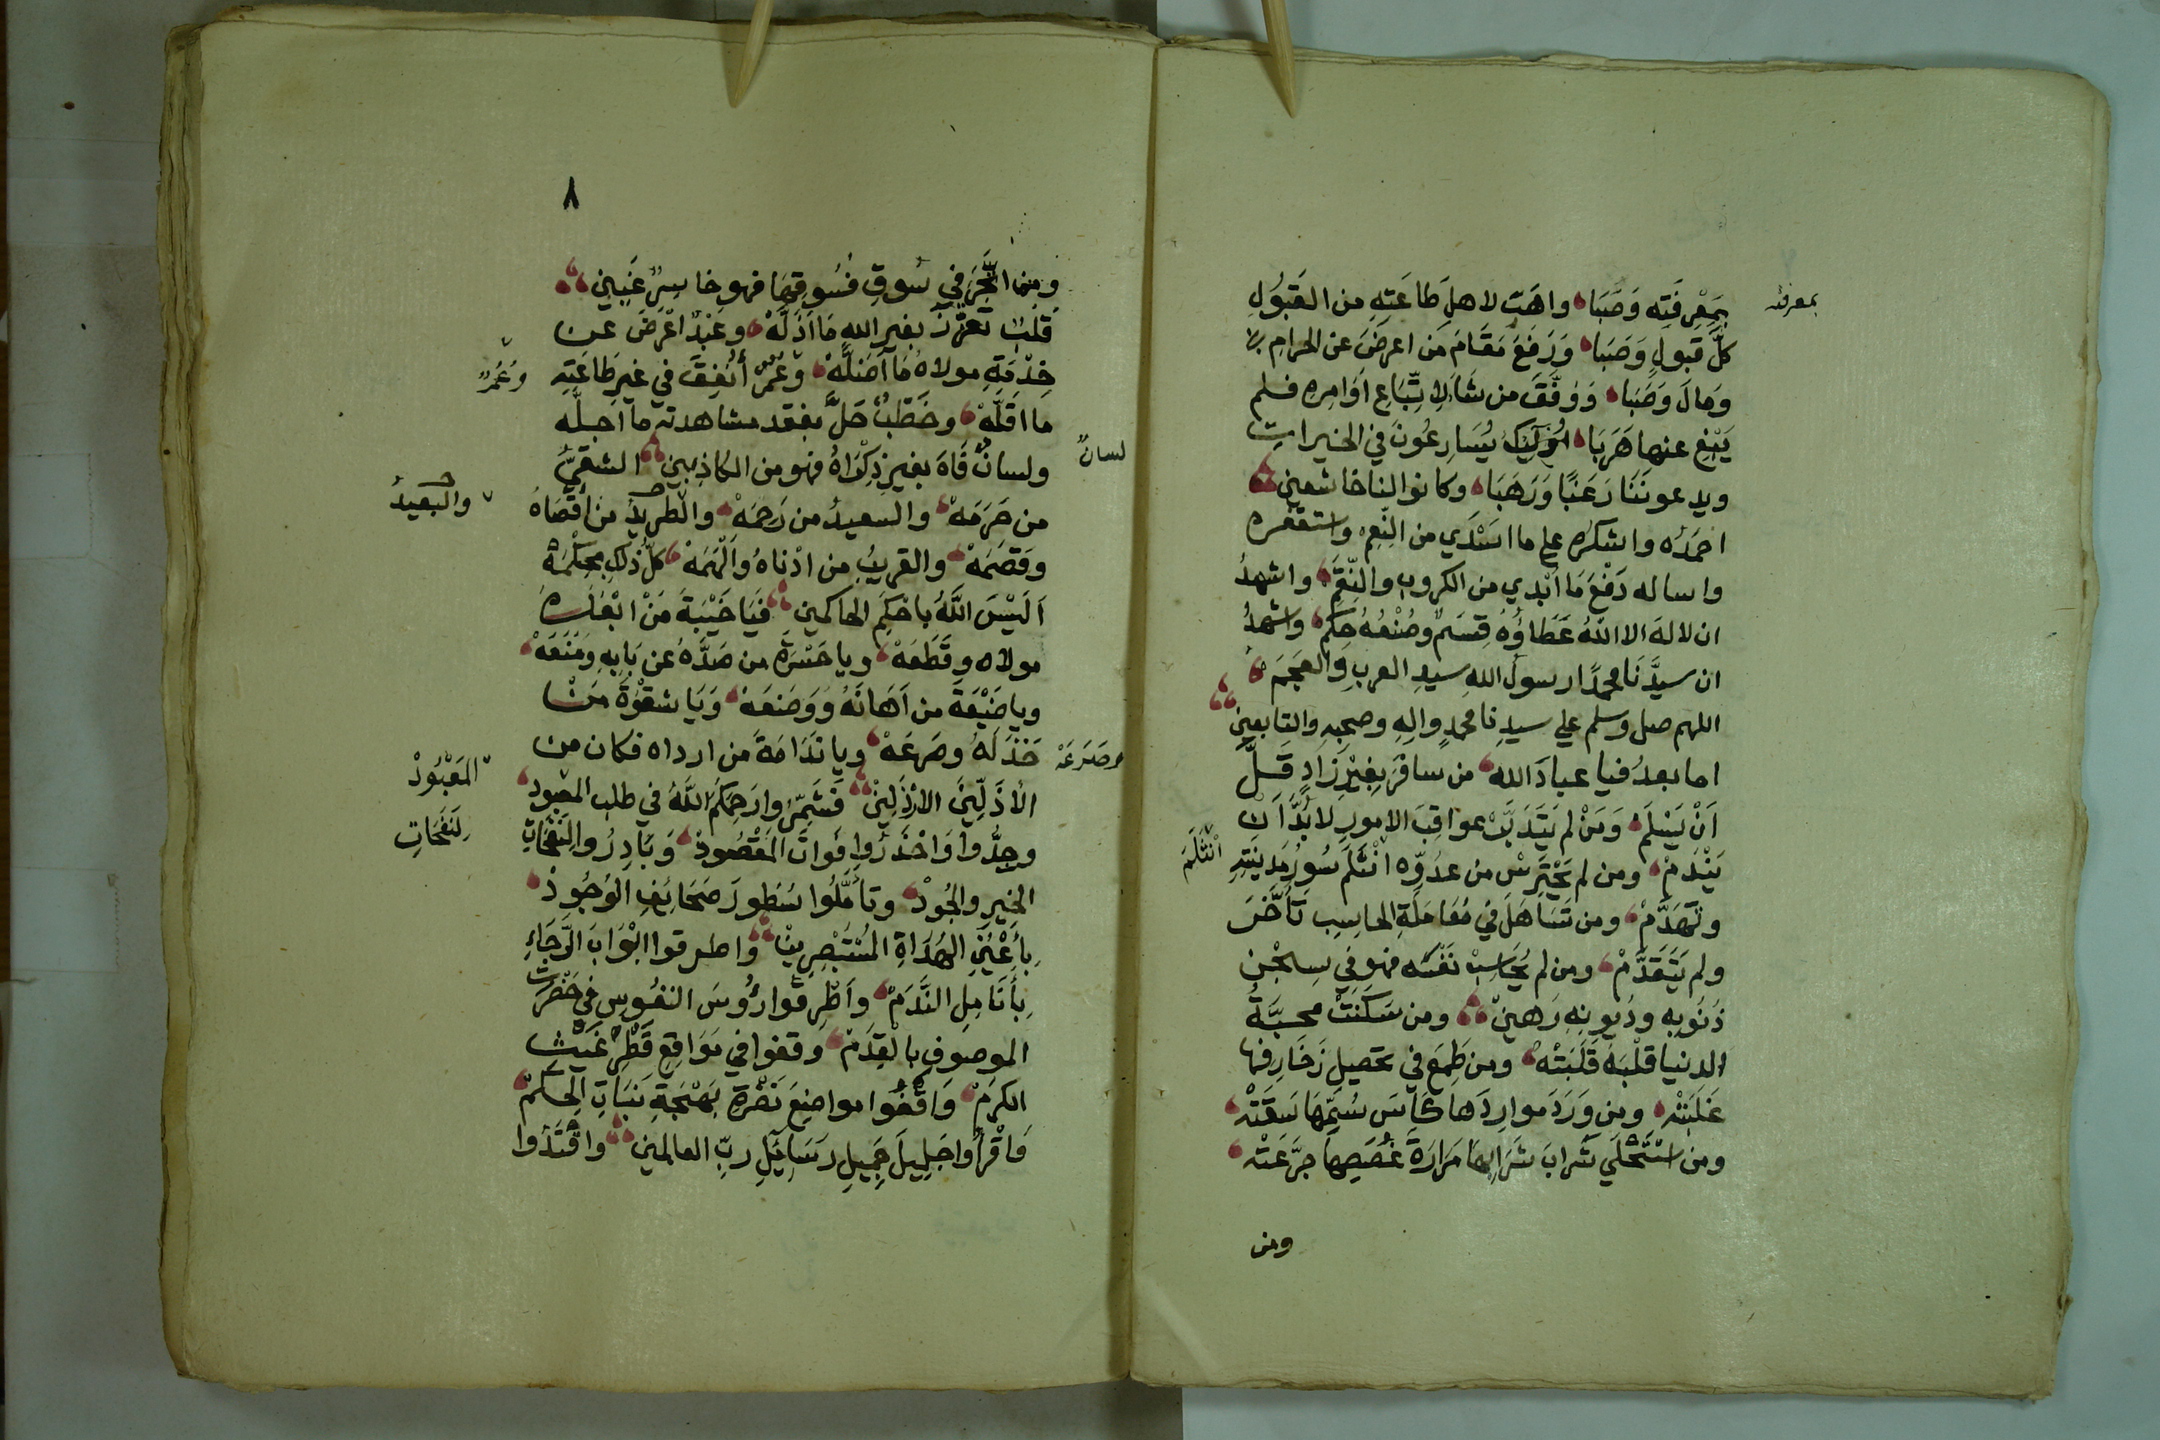 بِمَعْرِفَتِه وَصَبَا، واهَبّ لاهلِ طاعَتِهِ من القَبُولِ
بمعرفته
كلَّ قبولٍ وَصَبَا، وَرَفَعَ مَقَامَ مَن اعرَضَ عن الحرامِ
وَمَالَ وَصَبَا، وَوَفَّقَ من شَآءَ لاِتِّبَاعِ اَوَامِرِه فلم
يَبْغِ عنها هَرَبَا، اُولَئِكَ يُسَارِعُونَ في الخيراتِ
ويدعونَنَا رَغَبًا وَرَهَبَا، وكانوا لنا خاشعين
احمَدُه واشكره على ما اَسْدَي من النِّعَمِ، واستغفره
واساله دَفْعَ مَا اَبْدي من الكروبِ والنِّقَمِ، واشهدُ
ان لا لهَ الا اللهُ عَطَاؤُهُ قِسَمٌ وصُنْعُهُ حِكَم، واشهدُ
ان سيدَنَا محمدًا رسولُ اللهِ سيدِ العربِ والعَجَم،
اللهم صل وسلم علي سيدِنا محمدٍ والِهِ وصحبِه والتابعين
اما بعدُ فيا عبادَ الله، من سافَرَ بِغَيْرِ زَادٍ قَلَّ
اَنْ يَسْلَم، وَمَنْ لم يَتَدَبَّرْ عواقِبَ الامورِ لا بُدَّ اَنْ
يَنْدَمْ، ومن لم يَحْتَرِسْ من عدُوِّه انْثَلَمَ سُورُ مَدِينَتِهِ
انْثَلَمَ
وتَهَدَّمْ، ومن تَسَاهَلَ في مُعَامَلَةِ الحاسِبِ تَأَخَّرَ
ولم يَتَقَدَّمْ، ومن لم يُحَاسِبْ نَفْسَه فهو في سِجْنِ
ذُنُوبِه ودُيونِهِ رَهينْ، ومن سَكَنَتْ محبَّةُ
الدنيا قلْبَهُ قَلَبَتْهْ، ومن طَمِعَ في تحصيلِ زَخَارِفها
غَلَبَتْهْ، ومن وَرَدَ موارِدَها كَأْسَ سُمِّهَا سَقَتْهْ،
ومن اسْتَحْلَي شَرابَ شَرَابِهَا مَرَارَةَ غُصَصِها جرَّعَتْه،
ومن
٨
ومن اتَّجَرَ في سُوقِ فُسُوقِهَا فهو خاسِرٌ غَبِين
قلبٌ تَعَزَّزَ بغيرِ اللهِ مَا اَذَلَّهْ، وعبدٌ اعْرَضَ عن
خِدْمَةِ مولاهُ مَا اَضَلَّهْ، وعُمُرٌ أُنْفِقَ في غيرِ طَاعَتِه
وَعُمُرٌ
ما اَقَلَّهْ، وخَطْبٌ حَلَّ بفقدِ مشاهدتِه ما اَجلَّه
ولسانٌ فَاهَ بغيرِ ذِكْرَاهُ فهو من الكاذبين، الشقيُّ
لسانٌ
من حَرَمَهْ، والسعيدُ من رَحِمَهْ، والطريدُ من أَقْصَاهُ
والبعيدُ
وقَصَمَهْ، والقريبُ من ادْناهُ وَاَلْهَمَهْ، كلُّ ذلك بِحِكْمَةْ
اَلَيْسَ اللَّهُ باحْكَمِ الحاكمين، فَيَا خَيْبَةَ مَنْ ابْعَدَهُ
مولاه وقَطَعَهْ، ويا حَسْرَةَ من صَدَّهُ عن بَابِهِ ومَنَعَهْ،
ويا ضَيْعَةَ من اَهَانَهُ وَوَضَعَهْ، وَيَا شقْوَةَ مَنْ
خَذَلَهُ وصَرَعَهْ، ويا نَدَامَةَ من ارداه فكان من
وصَرَعَهْ
الأَذَلِّينَ الأرْذَلِينْ، فَشَمِّرُوا رَحِمَكُمُ اللَّهُ في طلبِ المعبودِ،
المَعْبُودْ
وجِدُّوا وَاحْذَرُوا فَواتَ المَقْصُودْ، وَبَادِرُوا لِنَفَحَاتِ
لِنَفَحَاتِ
الخيرِ والجُودْ، وتأَمَّلُوا سُطورَ صَحَائِفِ الوُجُودْ،
بِأَعْيُنِ الهُدَاةِ المُسْتَبْصِرِينْ، واطرقوا ابْوَابَ الرَّجَاءِ
بِأَنَامِلِ النَّدَمْ، وأَطْرِقُوا رُؤُوسَ النفُوسِ في حَضْرَتِ
الموصوفِ بالقِدَمْ، وقفوا في مَوَاقِعِ قَطْرِ غَيْثِ
الكرَمْ، وَاقْفُوا مواضِعَ نَضْرَةِ بَهْجَةِ نَبَاتِ الحِكَمْ،
وَاقْرأُوا جَلِيلَ جَمِيلِ رَسَايِلِ ربِّ العالمين، واقْتَدُوا